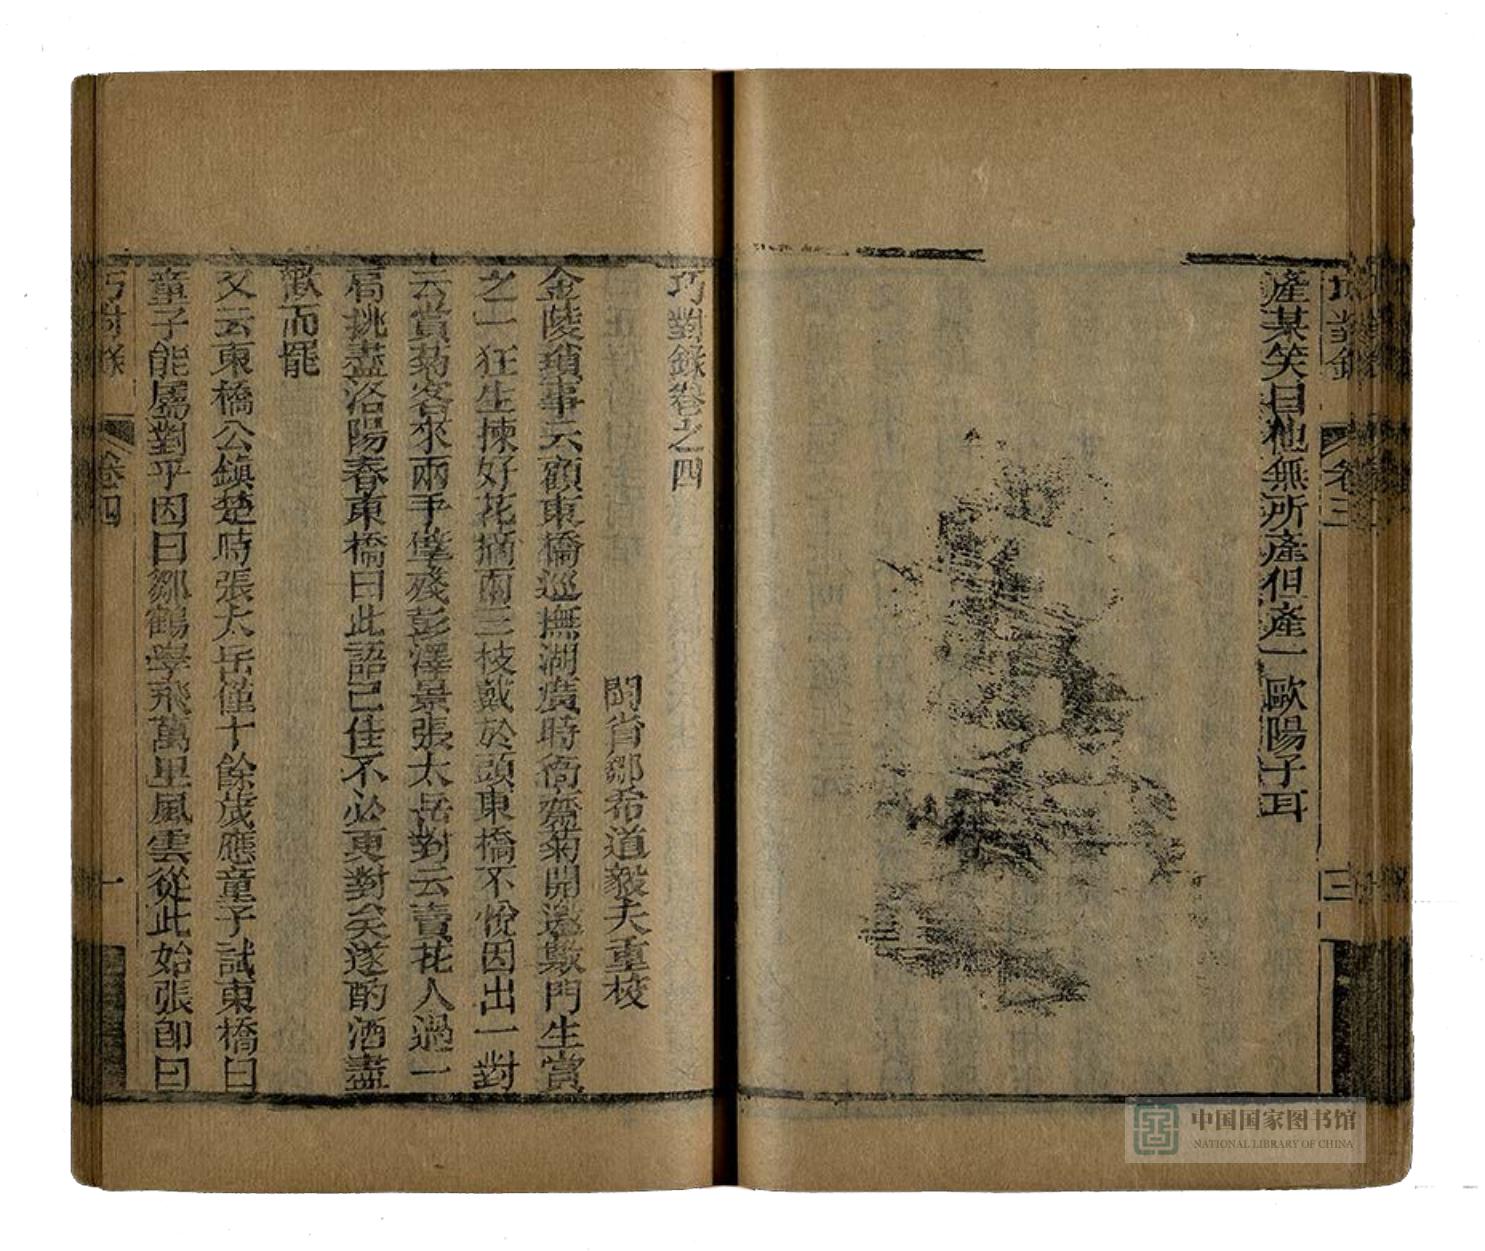 巧對錄
卷三
三
產某笑曰他無所產但產一歐陽子耳
巧對錄卷之四
閩省鄒希道毅夫重校
金陵瑣事云顧東橋巡撫湖廣時衙齋菊開邀數門生賞
之一狂生揀好花摘兩三枝戴於頭東橋不悅因出一對
云賞菊客來兩手擘殘彭澤景張太岳對云賣花人過一
肩挑盡洛陽春東橋曰此語已佳不必更對矣遂酌酒盡
歡而罷
又云東橋公鎮楚時張太岳僅十餘歲應童子試東橋曰
童子能屬對乎因曰鄒鶴學飛萬里風雲從此始張即曰
巧對錄
卷四
一
中国国家图书馆
NATIONAL LIBRARY OF CHINA